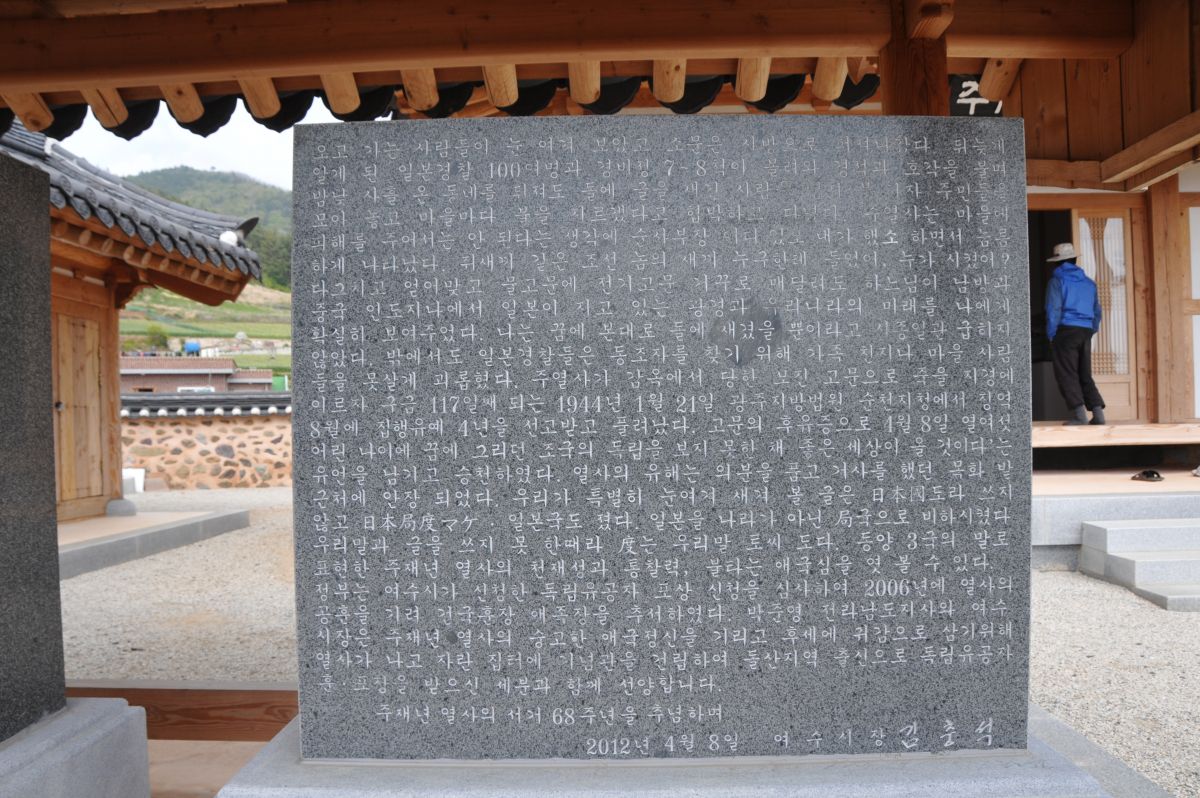 오고 가는 사람들이 눈 여겨 보았고 소문은 사방으로 퍼져나갔다. 뒤늦게
알게 된 일본경찰 100여명과 경비정 7~8척이 몰려와 경적과 호각을 불며
밤낮 사흘 온 동네를 뒤져도 돌에 글을 새긴 사람을 찾지 못하자 주민들을
모아 놓고 마을마다 불을 지르겠다고 협박하고 다녔다. 주열사는 마을에
피해를 주어서는 안 된다는 생각에 순사부장 내다 있소 내가 했소 하면서 늠름
하게 나타났다. 쥐새끼 같은 조선 놈의 새끼 누구한테 들었어, 누가 시켰어?
다그치자 얻어맞고 물고문에 전기고문 거꾸로 매달려도 하느님이 남방과
중국 인도지나에서 일본이 지고 있는 광경과 우리나라의 미래를 나에게
확실히 보여주었다. 나는 꿈에 본대로 돌에 새겼을 뿐이라고 시종일관 굽히지
않았다. 밖에서도 일본경찰들은 동조자를 찾기 위해 가족 일가나 마을 사람
들을 못살게 괴롭혔다. 주열사가 감옥에서 당한 모진 고문으로 죽을 지경에
이르자 구금 117일째 되는 1944년 1월 21일 광주지방법원 순천지청에서 징역
8월에 집행유예 4년을 선고받고 풀려났다. 고문의 후유증으로 4월 8일 열여섯
어린 나이에 꿈에 그리던 조국의 독립을 보지 못한 채 좋은 세상이 올 것이다'는
유언을 남기고 승천하였다. 열사의 유해는 의분을 품고 거사를 했던 목화 밭
근처에 안장 되었다. 우리가 특별히 눈여겨 새겨 볼 글은 日本國도라 쓰지
않고 日本局度マケ·일본국도 졌다. 일본을 나라가 아닌 局국으로 비하시켰다
우리말과 글을 쓰지 못 한때라 度는 우리말 토씨 도다. 동양 3국의 말로
표현한 주재년 열사의 천재성과 통찰력, 불타는 애국심을 엿 볼 수 있다.
정부는 여수시가 신청한 독립유공자 포상 신청을 심사하여 2006년에 열사의
공훈을 기려 건국훈장 애족장을 추서하였다. 박준영 전라남도지사와 여수
시장은 주재년 열사의 숭고한 애국정신을 기리고 후세에 귀감으로 삼기위해
열사가 나고 자란 집터에 기념관을 건립하여 돌산지역 출신으로 독립유공자
훈·포장을 받으신 세분과 함께 선양합니다.
주재년 열사의 서거 68주년을 추념하며
2012년 4월 8일 여수시장 김충석